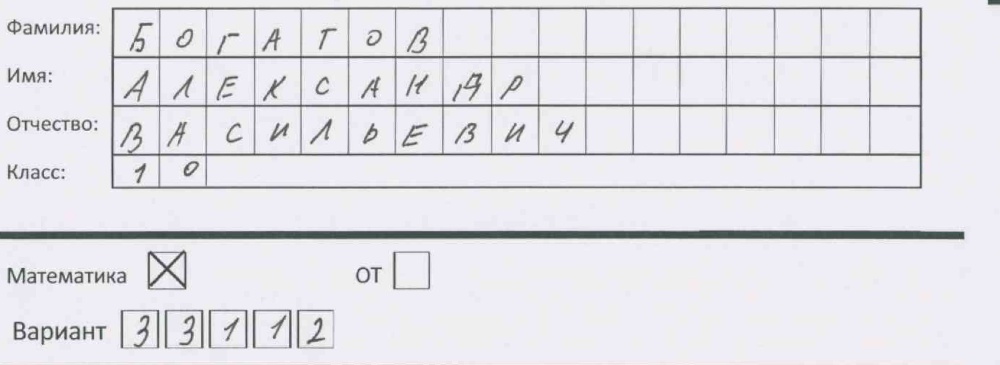 Фамилия: БОГАТОВ
Имя: АЛЕКСАНДР
Отчество: ВАСИЛЬЕВИЧ
Класс: 10
Математика ☒ ОТ ☐
Вариант 33112